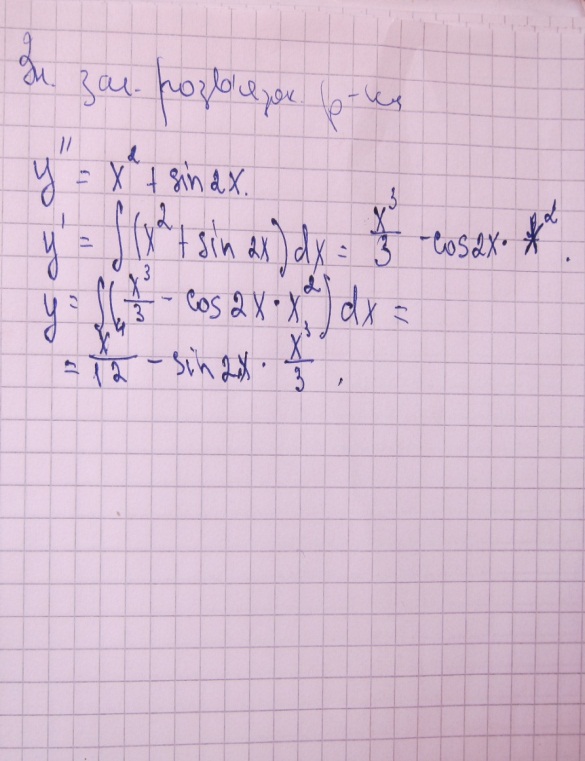 Зн. заг. розв'язок р-ня
y'' = x² + sin 2x.
y' = ∫(x² + sin 2x)dx = x³/3 - cos2x · x².
y = ∫(x³/3 - cos 2x · x²)dx =
= x⁴/12 - sin 2x · x³/3.